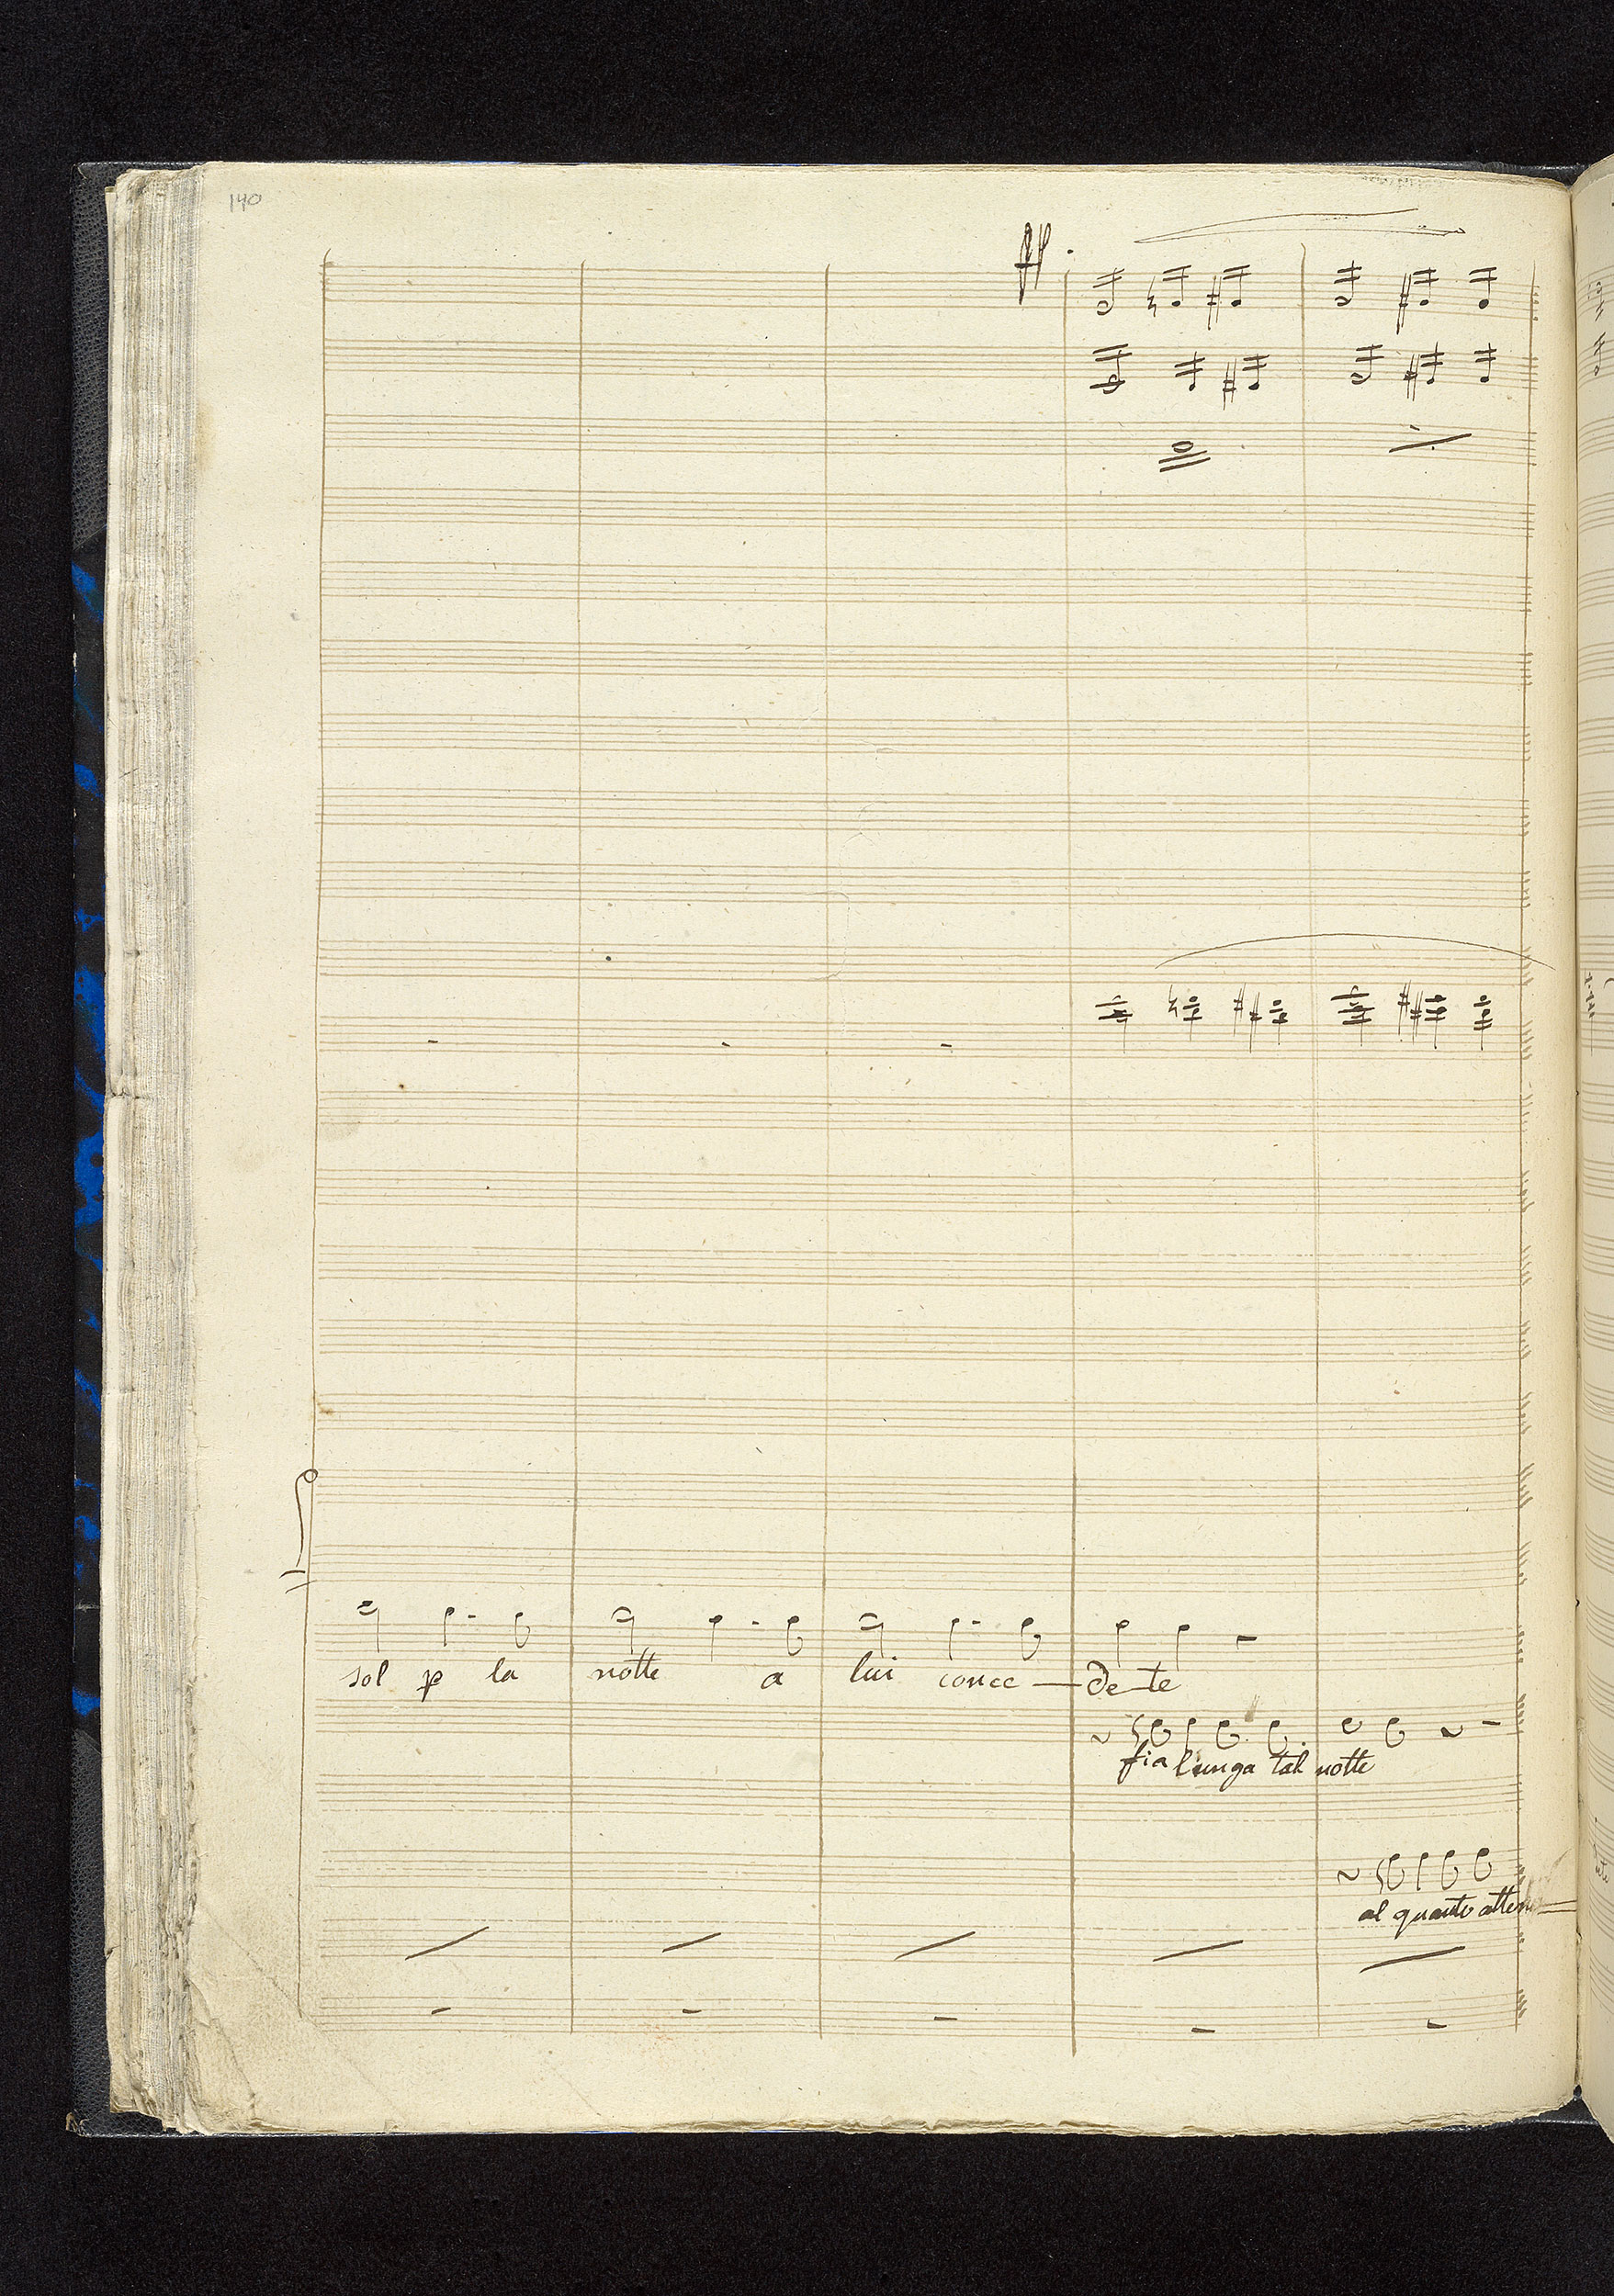 140
ff.
sol p la notte a lui conce - de-te
fia lunga tal notte
al quanto atten